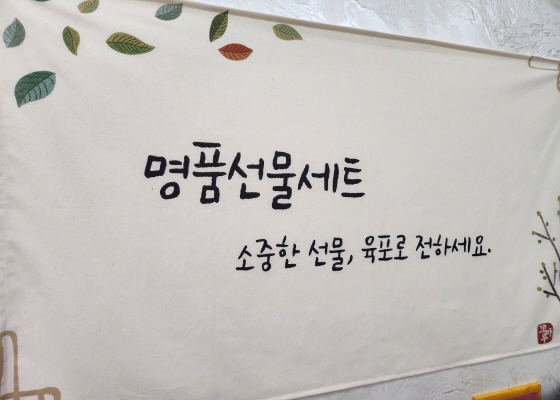 명품선물세트
소중한 선물, 육포로 전하세요.